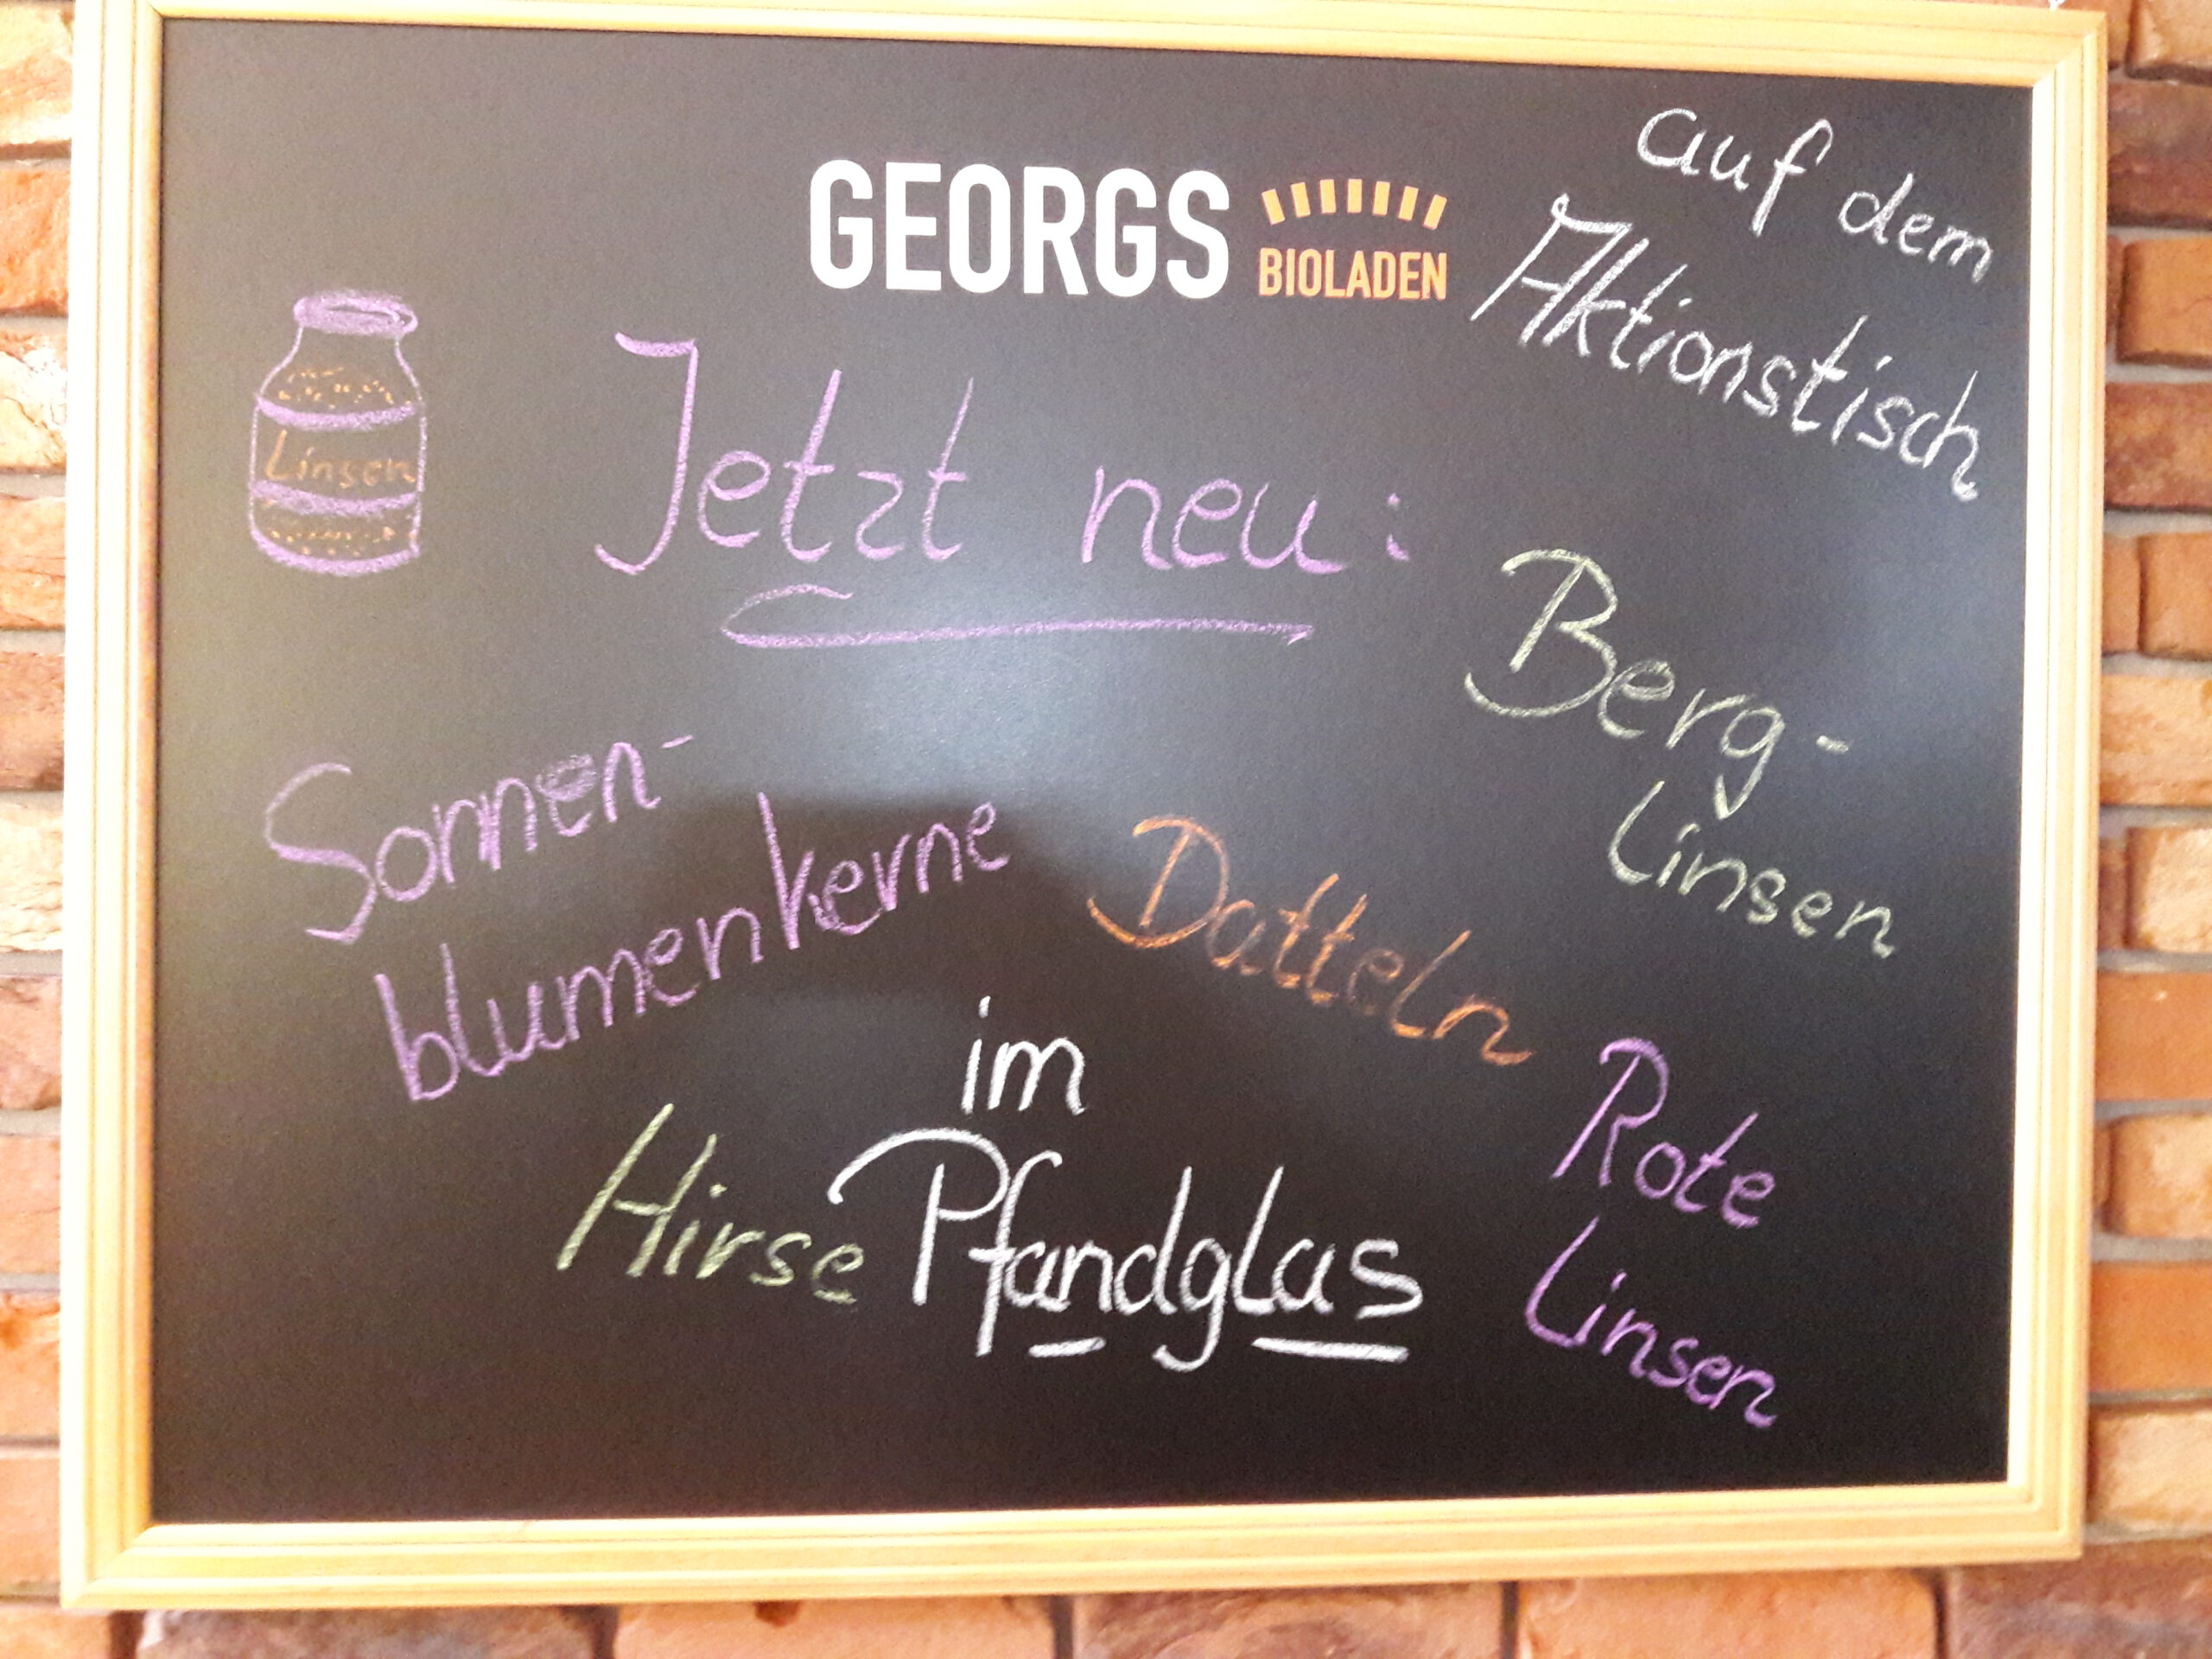 GEORGS
BIOLADEN
auf dem
Aktionstisch
Linsen
Jetzt neu:
Berg-
linsen
Sonnen-
blumenkerne
Datteln
im
Pfandglas
Hirse
Rote
Linsen